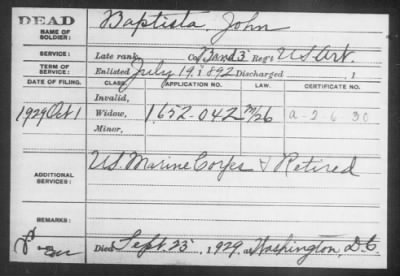 DEAD
Baptista, John
NAME OF
SOLDIER:
SERVICE:
Late rank, Co. Band 3" Reg't U.S. Art.
TERM OF
SERVICE:
Enlisted July 19, 1892 Discharged , 1
DATE OF FILING. CLASS. APPLICATION NO. LAW. CERTIFICATE NO.
Invalid,
1929 Oct 1 Widow, 1652-042 m/26 a-2-6-30
Minor,
ADDITIONAL
SERVICES:
U.S. Marine Corps & Retired
REMARKS:
Died Sept. 23, 1929, at Washington, D.C.